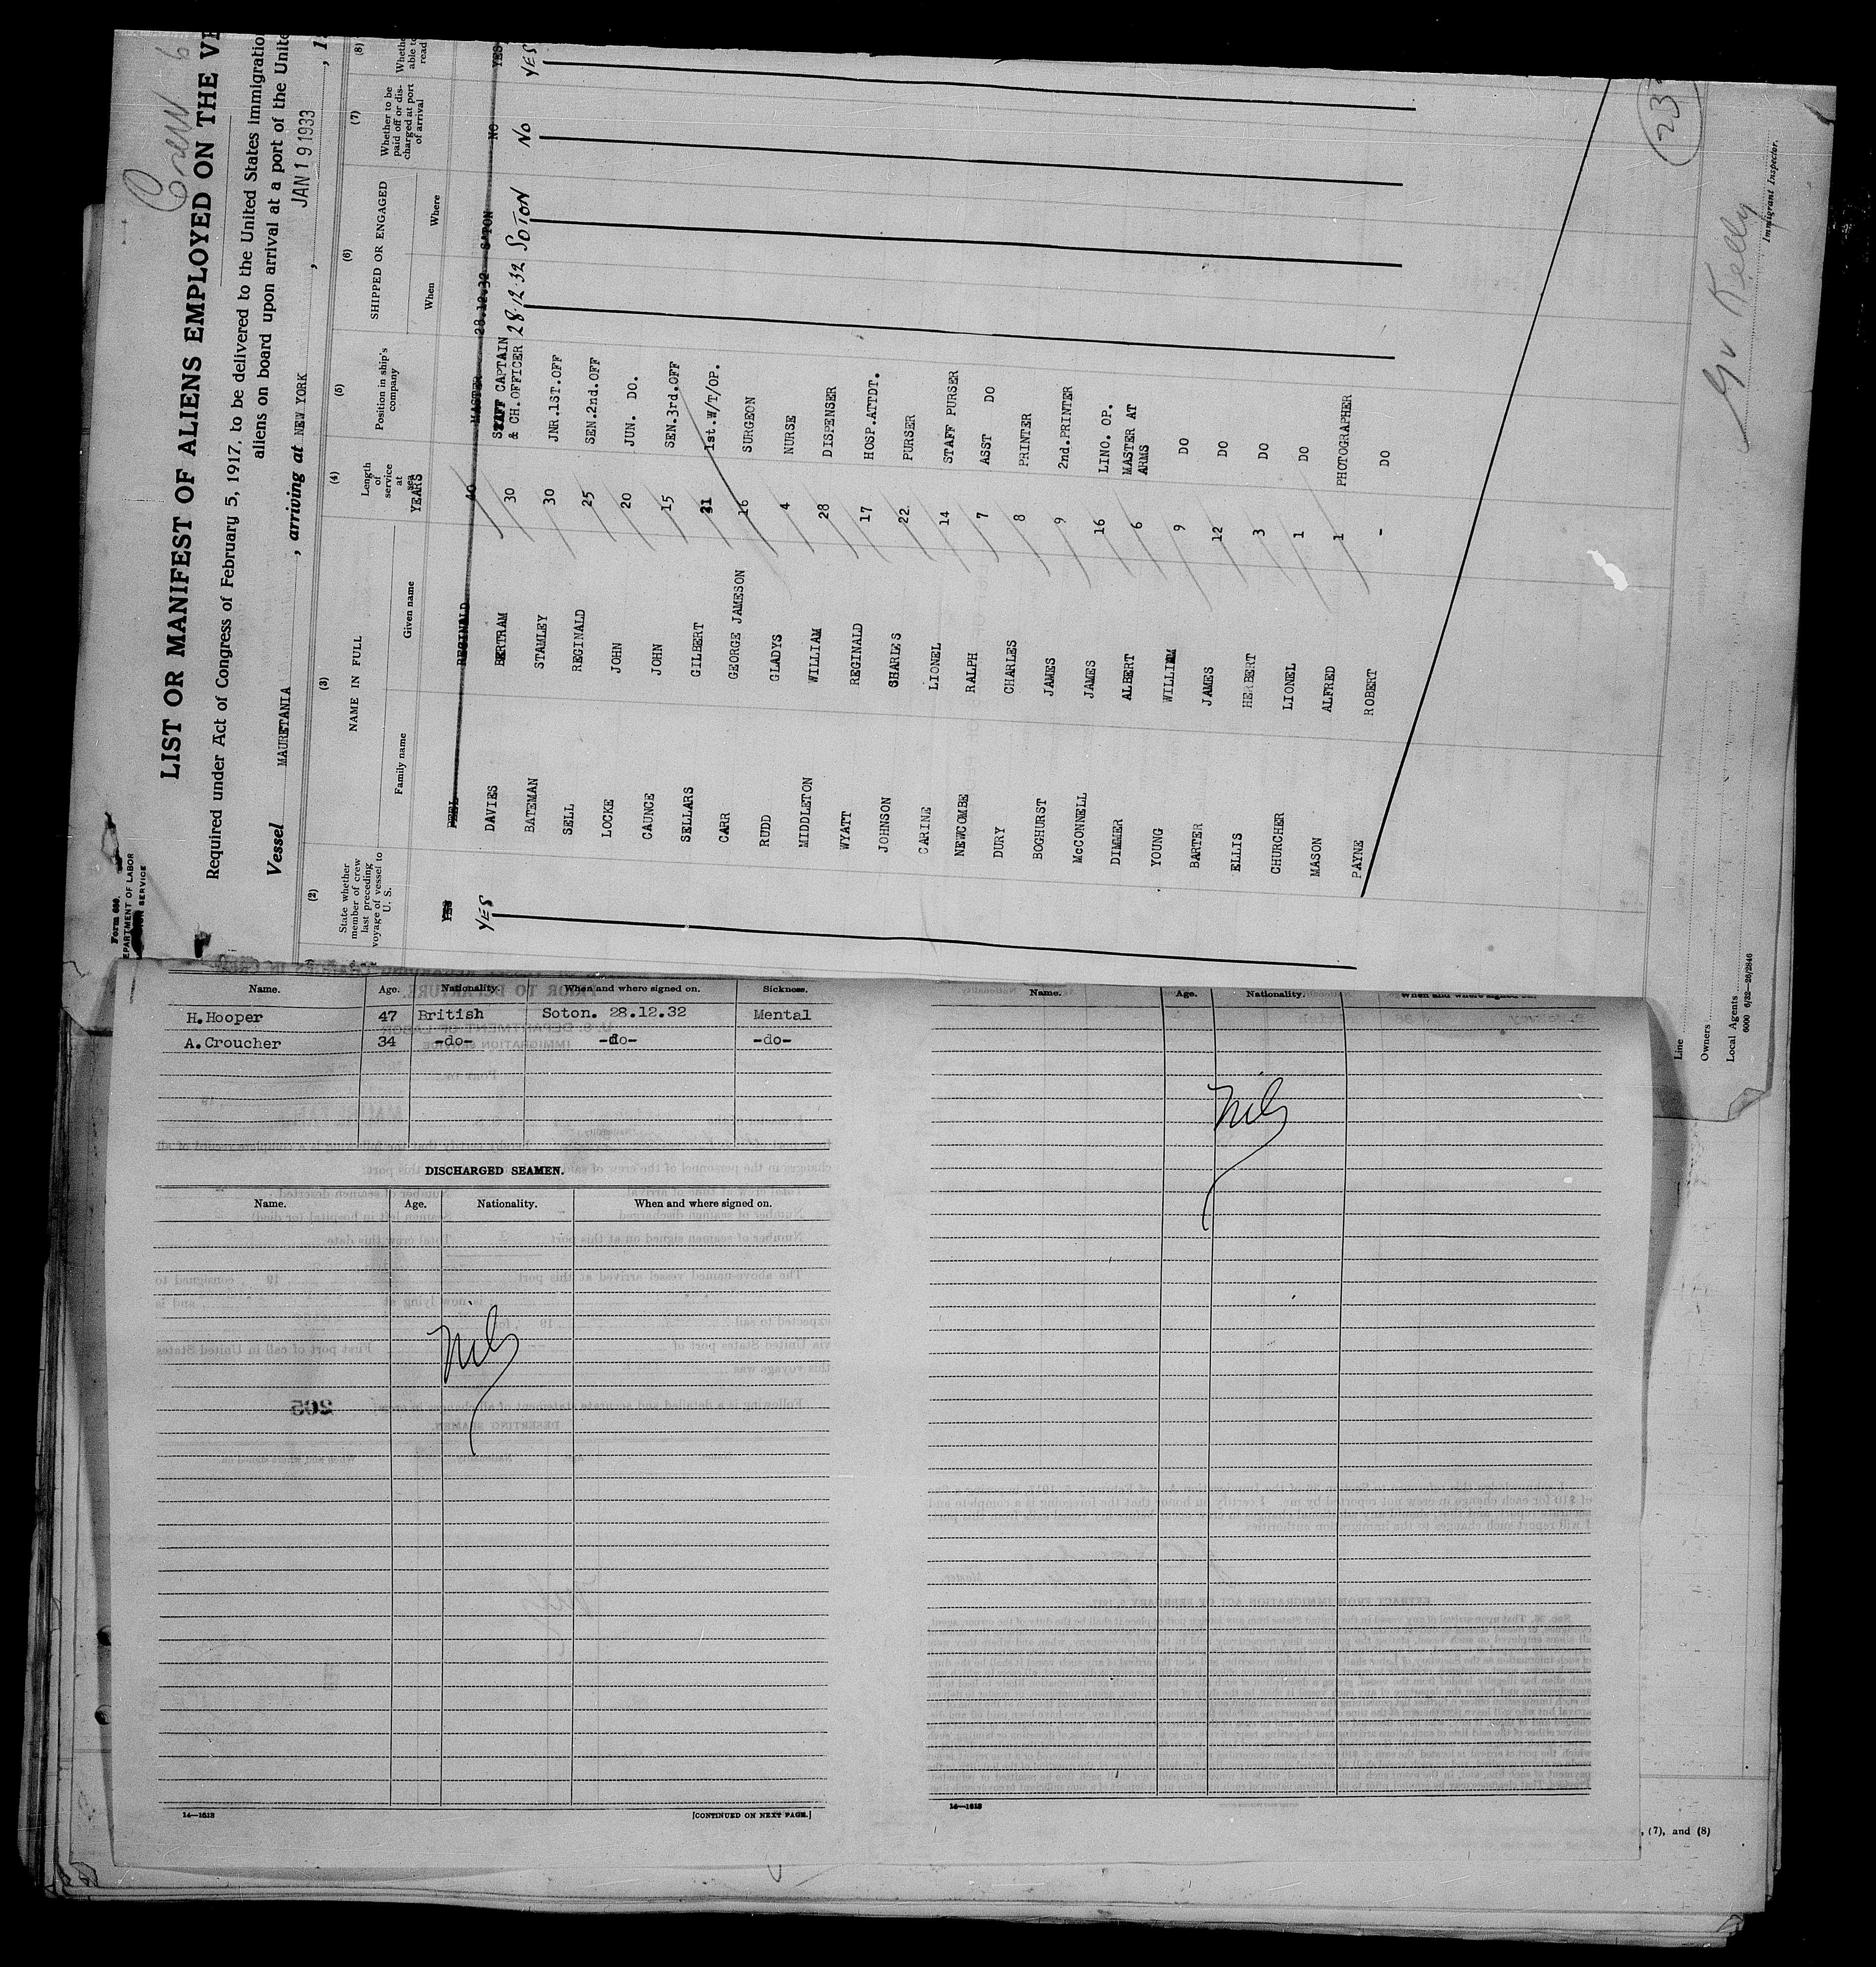 Crew 6
Form 680
DEPARTMENT OF LABOR
LIST OR MANIFEST OF ALIENS EMPLOYED ON THE
Required under Act of Congress of February 5, 1917, to be delivered to the United States immigration
aliens on board upon arrival at a port of the United
Vessel MAURETANIA , arriving at NEW YORK , JAN 19 1933 , 1
(2) (3) (4) (5) (6) (7) (8)
State whether member of crew last preceding voyage of vessel to U. S.
NAME IN FULL
Family name Given name
Length of service at sea
YEARS
Position in ship's company
SHIPPED OR ENGAGED
When Where
Whether to be paid off or discharged at port of arrival
Whether able to read
YES PEEL REGINALD 40 MASTER 28.12.32 S'TON NO YES
YES DAVIES BERTRAM 30 STAFF CAPTAIN & CH.OFFICER 28.12.32 SOTON NO YES
BATEMAN STAMLEY 30 JNR.1ST.OFF
SELL REGINALD 25 SEN.2nd.OFF
LOCKE JOHN 20 JUN. DO.
CAUNCE JOHN 15 SEN.3rd.OFF
SELLARS GILBERT 21 1st.W/T/OP.
CARR GEORGE JAMESON 16 SURGEON
RUDD GLADYS 4 NURSE
MIDDLETON WILLIAM 28 DISPENSER
WYATT REGINALD 17 HOSP.ATTDT.
JOHNSON CHARLES 22 PURSER
CARINE LIONEL 14 STAFF PURSER
NEWCOMBE RALPH 7 ASST DO
DURY CHARLES 8 PRINTER
BOGHURST JAMES 9 2nd.PRINTER
McCONNELL JAMES 16 LINO. OP.
DIMMER ALBERT 6 MASTER AT ARMS
YOUNG WILLIAM 9 DO
BARTER JAMES 12 DO
ELLIS HERBERT 3 DO
CHURCHER LIONEL 1 DO
MASON ALFRED 1 PHOTOGRAPHER
PAYNE ROBERT - DO
23
Kelly
Immigrant Inspector.
Line
Owners
Local Agents
6000 6/32—26/2846
Name. Age. Nationality. When and where signed on. Sickness.
H.Hooper 47 British Soton. 28.12.32 Mental
A.Croucher 34 -do- -do- -do-
DISCHARGED SEAMEN.
Name. Age. Nationality. When and where signed on.
Nil
14—1613 [CONTINUED ON NEXT PAGE.]
Name. Age. Nationality. When and where signed on.
Nil
14—1613
, (7), and (8)